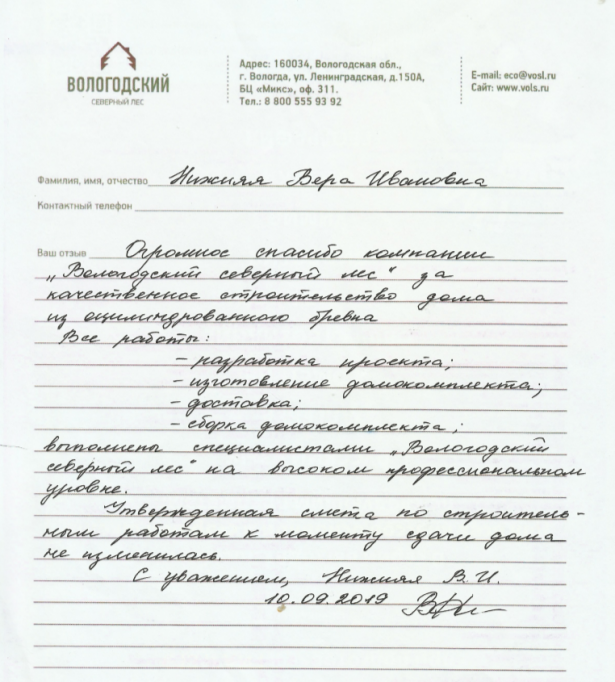 ВОЛОГОДСКИЙ
СЕВЕРНЫЙ ЛЕС
Адрес: 160034, Вологодская обл.,
г. Вологда, ул. Ленинградская, д.150А,
БЦ «Микс», оф. 311.
Тел.: 8 800 555 93 92
E-mail: eco@vosl.ru
Сайт: www.vols.ru
Фамилия, имя, отчество Нижняя Вера Ивановна
Контактный телефон
Ваш отзыв Огромное спасибо компании
„Вологодский северный лес“ за
качественное строительство дома
из оцилиндрованного бревна
Все работы:
- разработка проекта;
- изготовление домокомплекта;
- доставка;
- сборка домокомплекта;
выполнены специалистами „Вологодский
северный лес“ на высоком профессиональном
уровне.
Утвержденная смета по строитель-
ным работам к моменту сдачи дома
не изменилась.
С уважением, Нижняя В.И.
10.09.2019